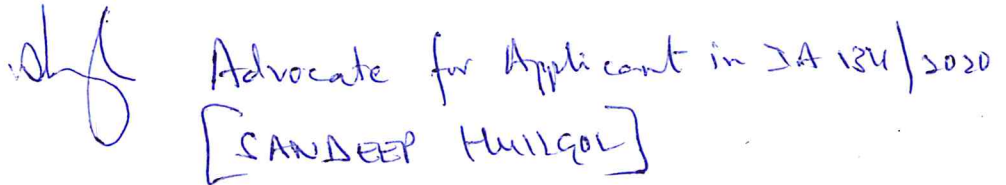 Advocate for Applicant in IA 134/2020
[SANDEEP HUILGOL]